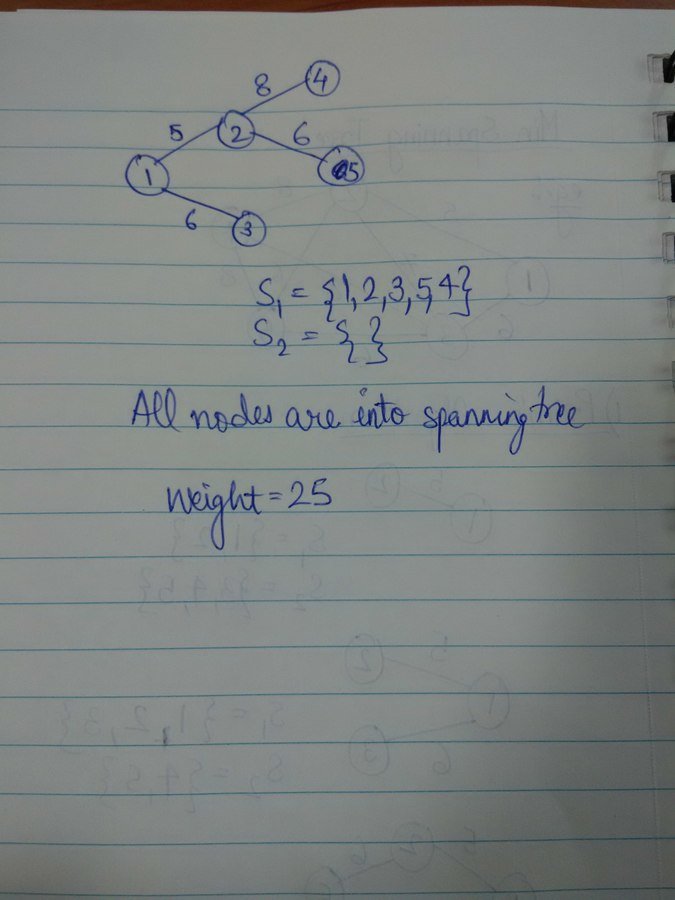 8 4
5 2 6
1 5
6 3
S₁ = {1,2,3,5,4}
S₂ = { }
All nodes are into spanning tree
Weight = 25